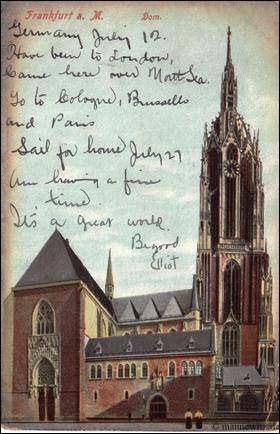 Frankfurt a. M. Dom.
Germany July 12.
Have been to London,
Came here over North Sea.
Go to Cologne, Brussells
and Paris
Sail for home July 27
Am having a fine
time.
It's a great world.
Be good
Eliot